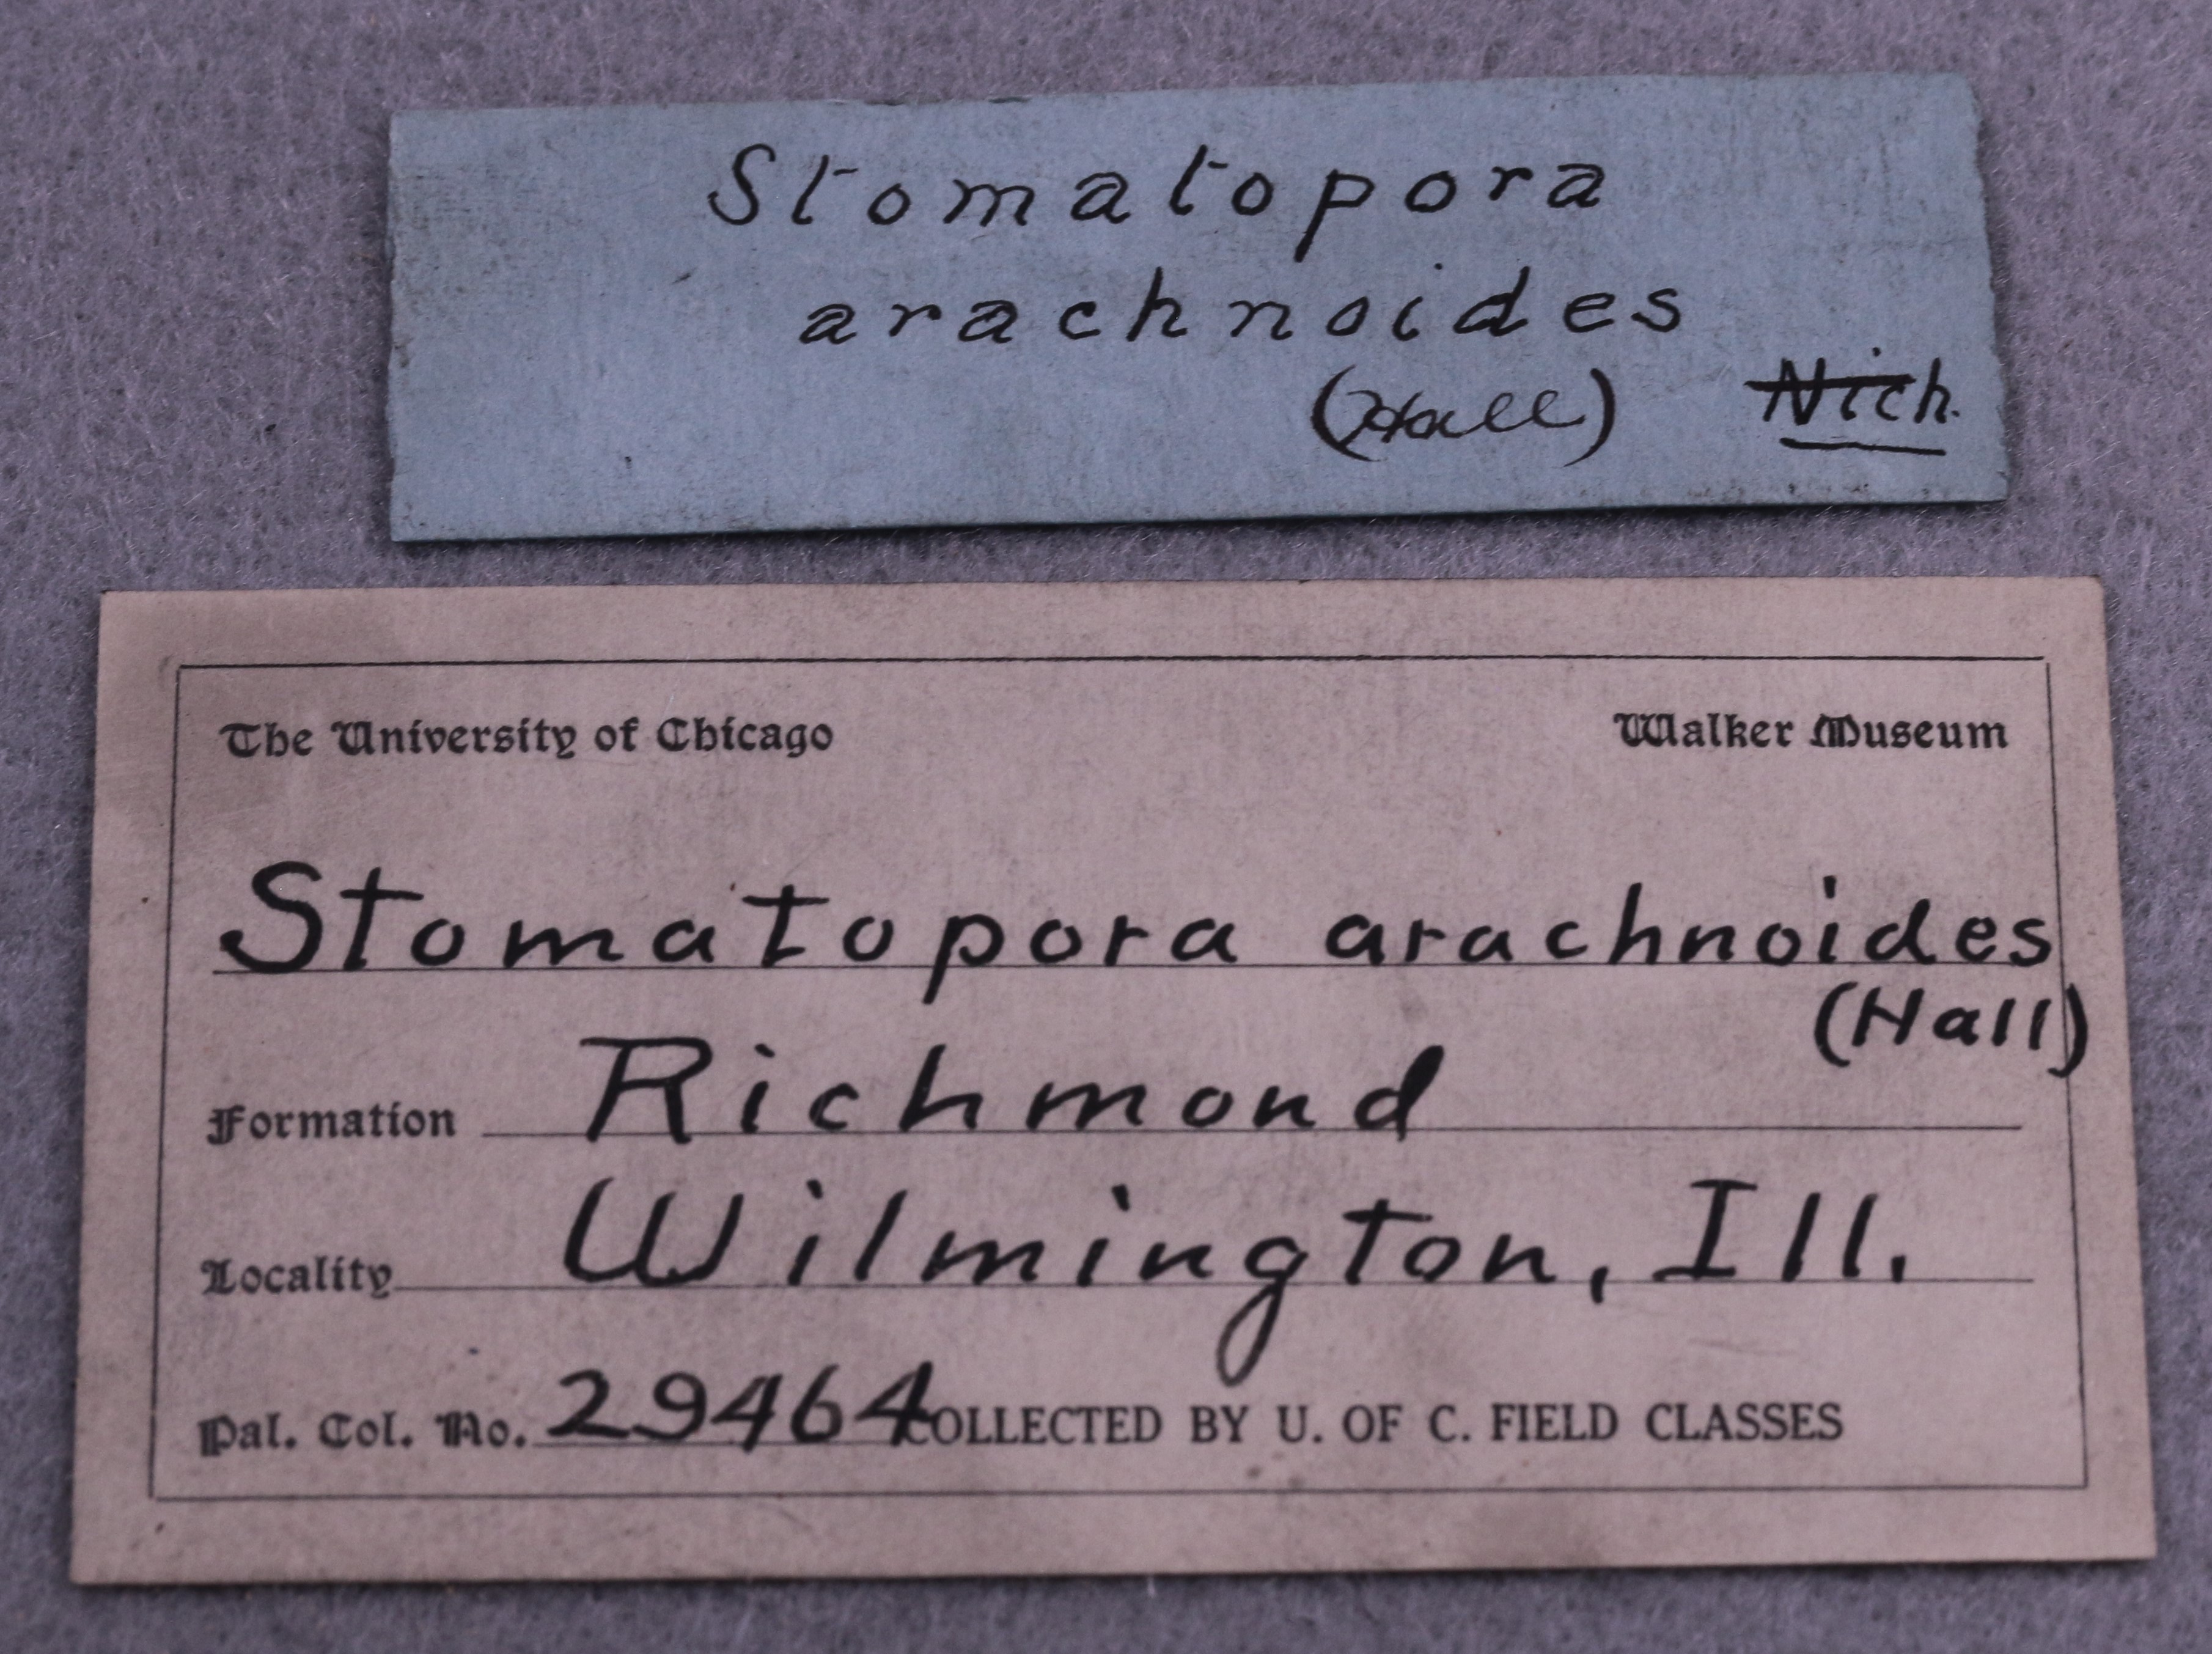 Stomatopora
arachnoides
(Hall) Nich.
The University of Chicago Walker Museum
Stomatopora arachnoides
(Hall)
Formation Richmond
Locality Wilmington, Ill.
Pal. Col. No. 29464 COLLECTED BY U. OF C. FIELD CLASSES